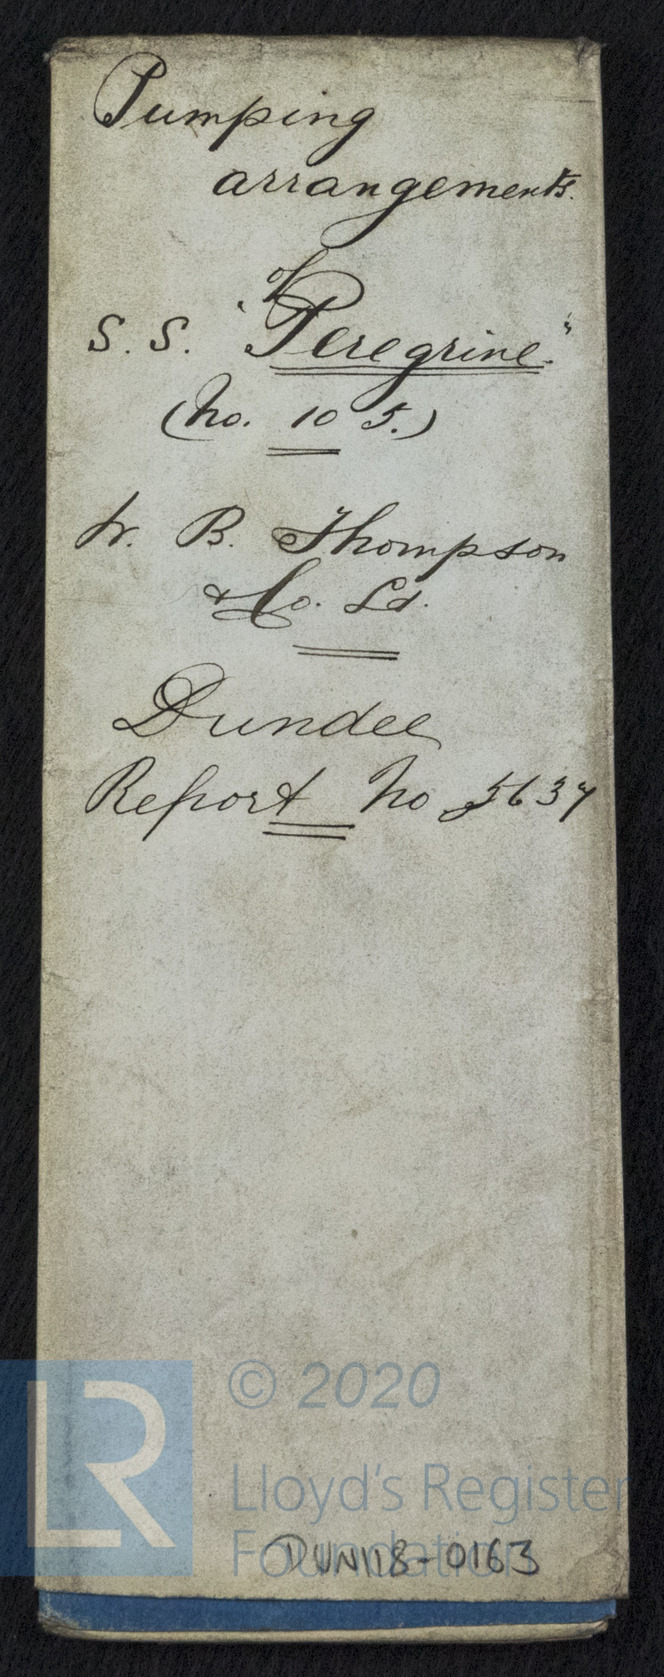 Pumping
arrangements.
of
S. S. "Peregrine."
(No. 105.)
W. B. Thompson
& Co. Ld.
Dundee
Report No 5637
LR
© 2020
Lloyd's Register
Foundation
DUN118-0163